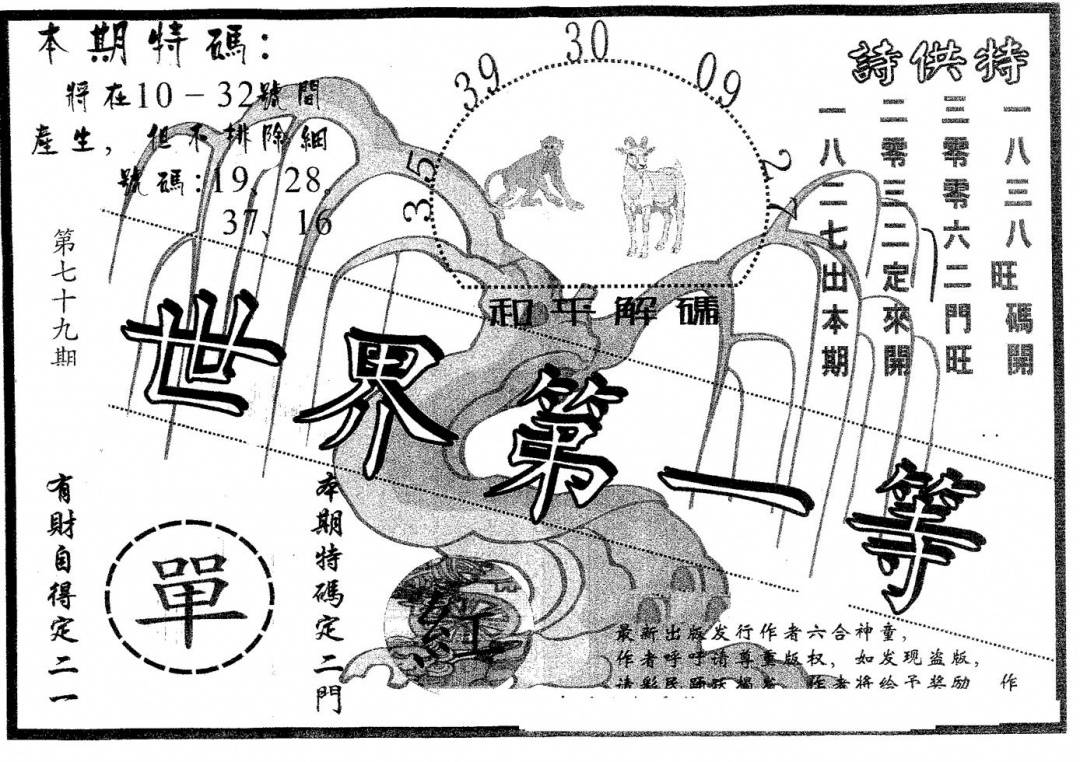 本期特碼：
將在10－32號間
產生，但不排除細
號碼：19、28。
37、16
39
30
09
35
27
特供詩
一八三八旺碼開
三零零六二門旺
二零三二定來開
一八二七出本期
第七十九期
和平解碼
世界第一等
有財自得定二一
單
本期特碼定二門
紅
最新出版发行作者六合神童，
作者呼吁请尊重版权，如发现盗版，
请彩民踊跃揭发 作者将给予奖励 作